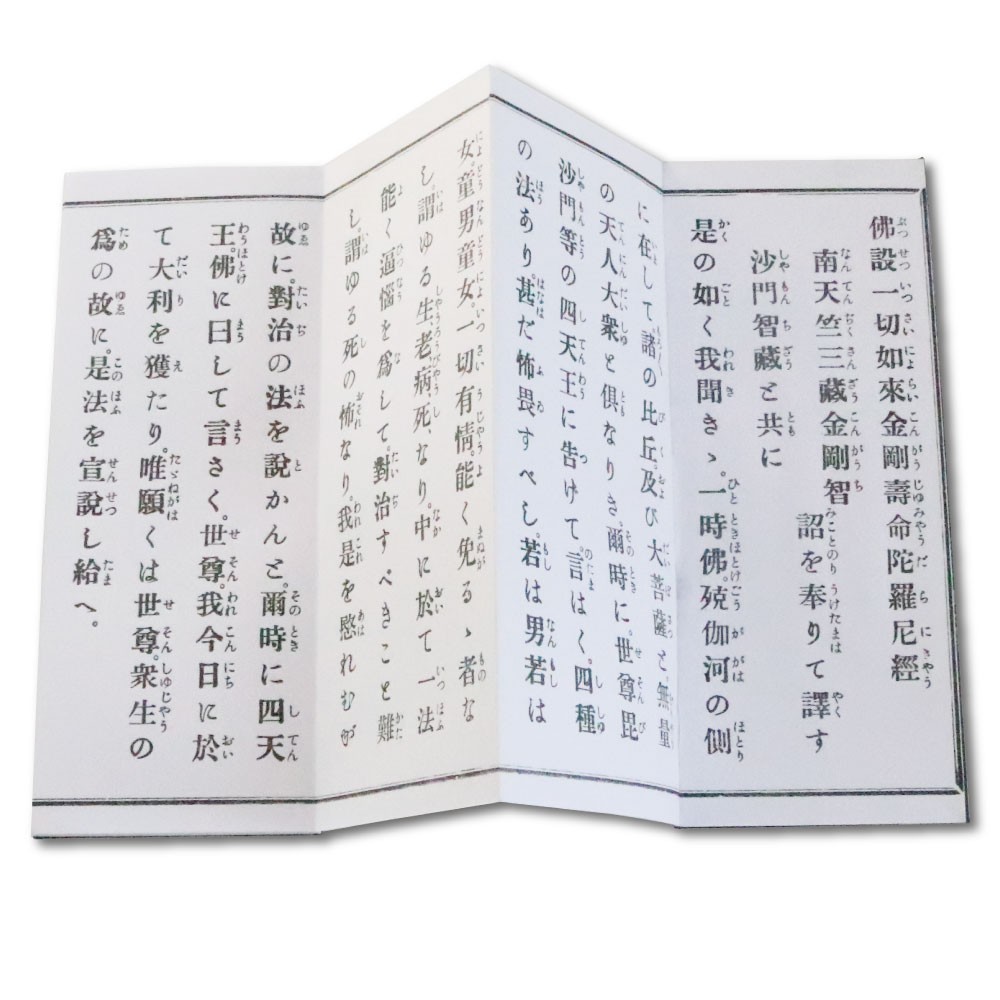 佛設一切如來金剛壽命陀羅尼經
南天竺三藏金剛智
沙門智藏と共に
詔を奉りて譯す
是の如く我聞きゝ。一時佛。殑伽河の側
に在して諸の比丘。及び大菩薩と。無量
の天人大衆と俱なりき。爾時に。世尊毘
沙門等の四天王に告げて言はく。四種
の法あり。甚だ怖畏すべし。若は男若は
女。童男童女。一切有情。能く免るゝ者な
し。謂ゆる生、老、病、死、なり。中に於て一法
能く逼惱を爲して。對治すべきこと難
し。謂ゆる死の怖なり。我是を愍れむが
故に。對治の法を説かんと。爾時に四天
王。佛に曰して言さく。世尊。我今日に於
て大利を獲たり。唯願くは世尊。衆生の
爲の故に。是法を宣説し給へ。